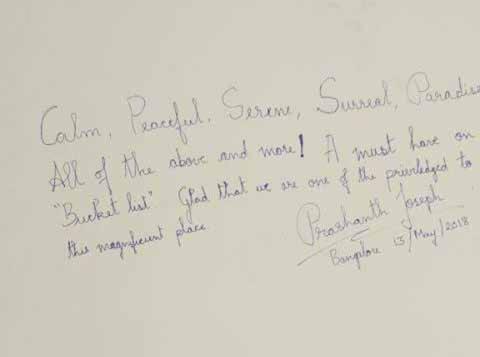 Calm, Peaceful, Serene, Surreal, Paradise
All of the above and more! A must have on
"Bucket list". Glad that we are one of the priviledged to
this magnificient place
Prashanth Joseph
Bangalore 13/May/2018